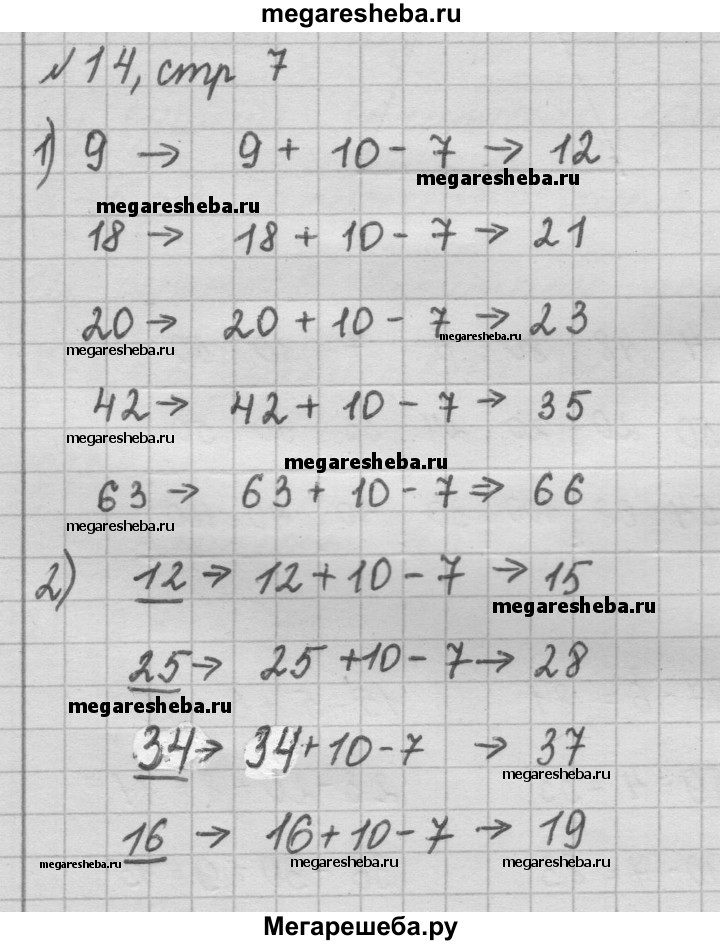 megaresheba.ru
№14, стр 7
1) 9 → 9 + 10 - 7 → 12
megaresheba.ru
megaresheba.ru
18 → 18 + 10 - 7 → 21
20 → 20 + 10 - 7 → 23
megaresheba.ru
megaresheba.ru
42 → 42 + 10 - 7 → 35
megaresheba.ru
megaresheba.ru
63 → 63 + 10 - 7 ⇒ 66
megaresheba.ru
2) 12 → 12 + 10 - 7 → 15
megaresheba.ru
25 → 25 + 10 - 7 → 28
megaresheba.ru
34 → 34 + 10 - 7 → 37
megaresheba.ru
16 → 16 + 10 - 7 → 19
megaresheba.ru
megaresheba.ru
megaresheba.ru
Мегарешеба.ру